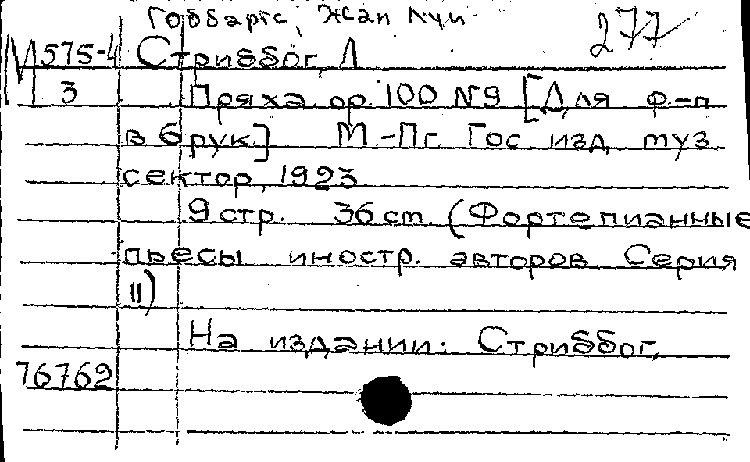 Гоббартс, Жан Луи
277
М 575-4 Стриббог, Л
3 Пряха ор. 100 N9 [Для ф-п
в 6 рук.] М-Пг. Гос. изд. муз
сектор, 1923
9 стр. 36 cm (Фортепианные
пьесы иностр. авторов Серия
II)
На издании: Стриббог,
76762